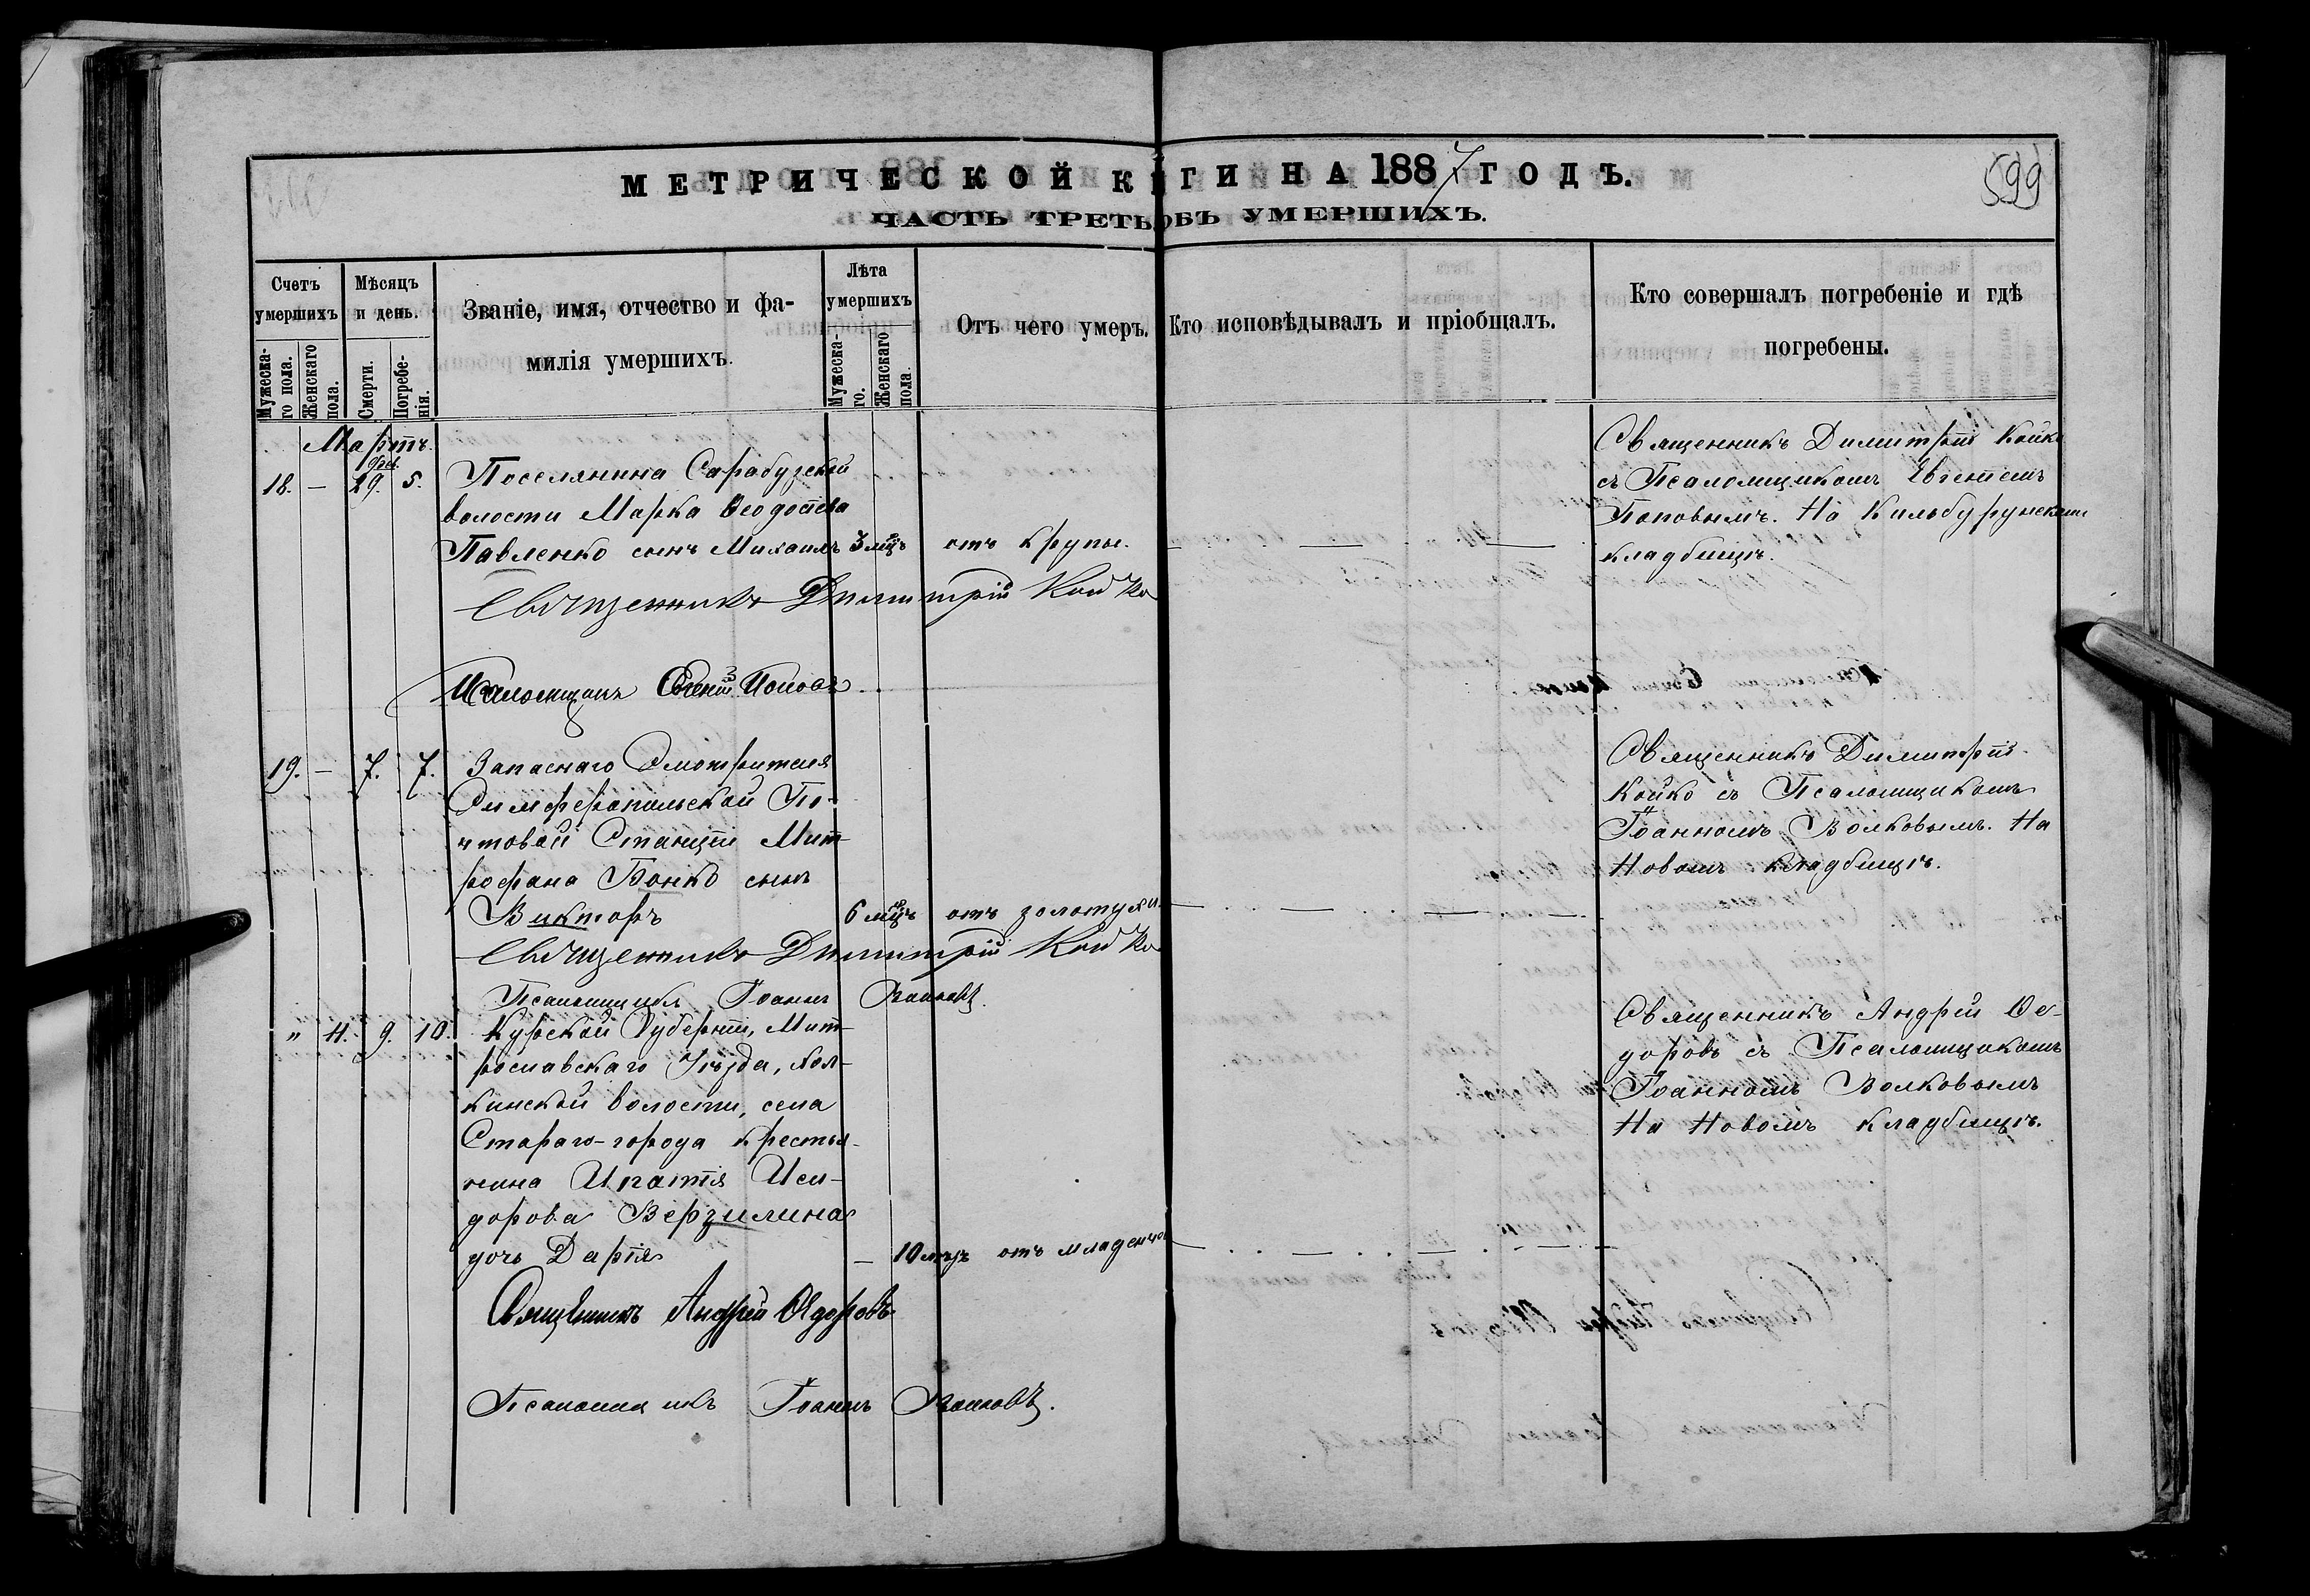 МЕТРИЧЕСКОЙ КНГИ НА 1887 ГОДЪ.
599
ЧАСТЬ ТРЕТЬ ОБЪ УМЕРШИХЪ.
Счетъ умершихъ
Мужеска-го пола.
Женскаго пола.
Мѣсяцъ и день.
Смерти.
Погребе-нія.
Званіе, имя, отчество и фа-
милія умершихъ.
Лѣта умершихъ
Мужеска-го.
Женскаго пола.
Отъ чего умеръ.
Кто исповѣдывалъ и пріобщалъ.
Кто совершалъ погребеніе и гдѣ
погребены.
Мартъ.
18. — фев. 29. 5. Поселянина Сарабузской
волости Марка Ѳеодосіева
Павленко сынъ Михаилъ 3 мцъ отъ крупы.
Священникъ Димитрій Койко
съ Псаломщикомъ Евгеніемъ
Поповымъ. На Кильбурунскомъ
кладбищѣ.
Священникъ Димитрій Койко
Псаломщикъ Евгеній Поповъ.
19. — 7. 7. Запаснаго Смотрителя
Симферопольской По-
чтовой Станціи Мит-
рофана Бонко сынъ
Викторъ 6 мцъ отъ золотухи.
Священникъ Димитрій
Койко съ Псаломщикомъ
Іоанномъ Волковымъ. На
Новомъ кладбищѣ.
Священникъ Димитрій Койко
Псаломщикъ Іоаннъ Волковъ.
" 4. 9. 10. Курской Губерніи, Мит-
рославскаго Уѣзда, Хол-
кинской волости, села
Стараго-города крестья-
нина Игнатія Иси-
дорова Верзилина
дочь Дарія — 10 мцъ отъ младенч.
Священникъ Андрей Ѳе-
доровъ съ Псаломщикомъ
Іоанномъ Волковымъ
На Новомъ кладбищѣ.
Священникъ Андрей Ѳедоровъ
Псаломщикъ Іоаннъ Волковъ.